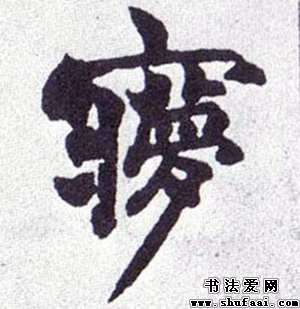 㝱
书法爱网
www.shufaai.com